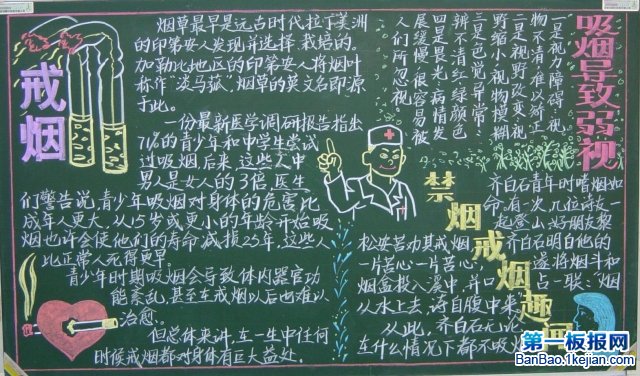 戒烟
烟草最早是远古时代拉丁美洲
的印第安人发现并选择栽培的。
加勒比地区的印第安人将烟叶
称作“淡马菰”，烟草的英文名即源
于此。
一份最新医学调研报告指出
71%的青少年和中学生尝试
过吸烟，后来，这些人中
男人是女人的3倍，医生
们警告说，青少年吸烟对身体的危害比
成年人更大，从15岁或更小的年龄开始吸
烟也许会使他们的寿命减损25年，这些人
比正常人死得更早。
青少年时期吸烟会导致体内器官功
能紊乱，甚至在戒烟以后也难以
治愈。
但总体来讲，在一生中任何
时候戒烟都对身体有巨大益处。
吸烟导致弱视
一是视力障碍，视
物不清难以矫正
二是视野改变，视
野缩小，视物模糊
三是色觉异常：
辨不清红绿颜色
四是畏光，病情发
展缓慢，很容易被
人们所忽视
禁烟戒烟趣闻
齐白石青年时嗜烟如
命，有一次，几位诗友一
起登山，好朋友黎
松安苦劝其戒烟，齐白石明白他的
一片苦心，遂将烟斗和
烟盒投入溪中，并口占一联：“烟
从水上去，诗自腹中来”
从此，齐白石无论
在什么情况下都不吸烟
第一板报网
BanBao.1kejian.com